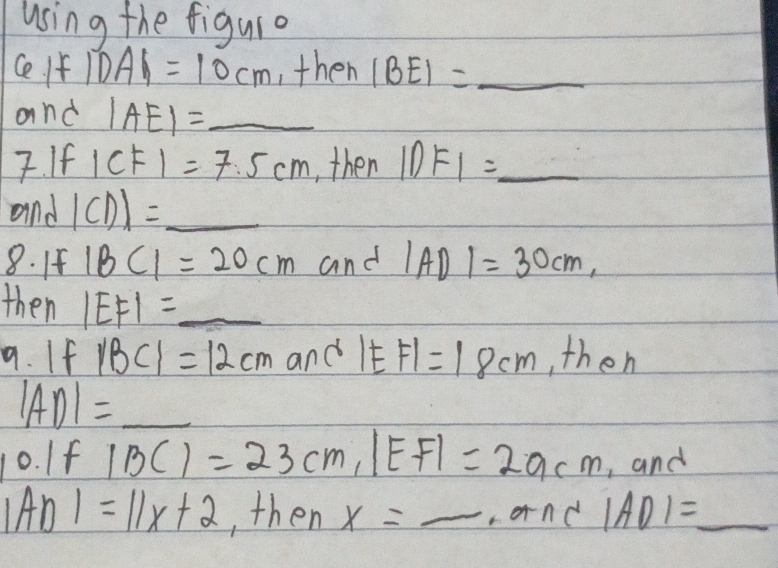 Using the figure
6. If |DA| = 10cm, then |BE| = ____
and |AE| = ____
7. If |CF| = 7.5cm, then |DF| = ____
and |CD| = ____
8. If |BC| = 20cm and |AD| = 30cm,
then |EF| = ____
9. If |BC| = 12cm and |EF| = 18cm, then
|AD| = ____
10. If |BC| = 23cm, |EF| = 29cm, and
|AD| = 11x+2, then x = ___. and |AD| = ____